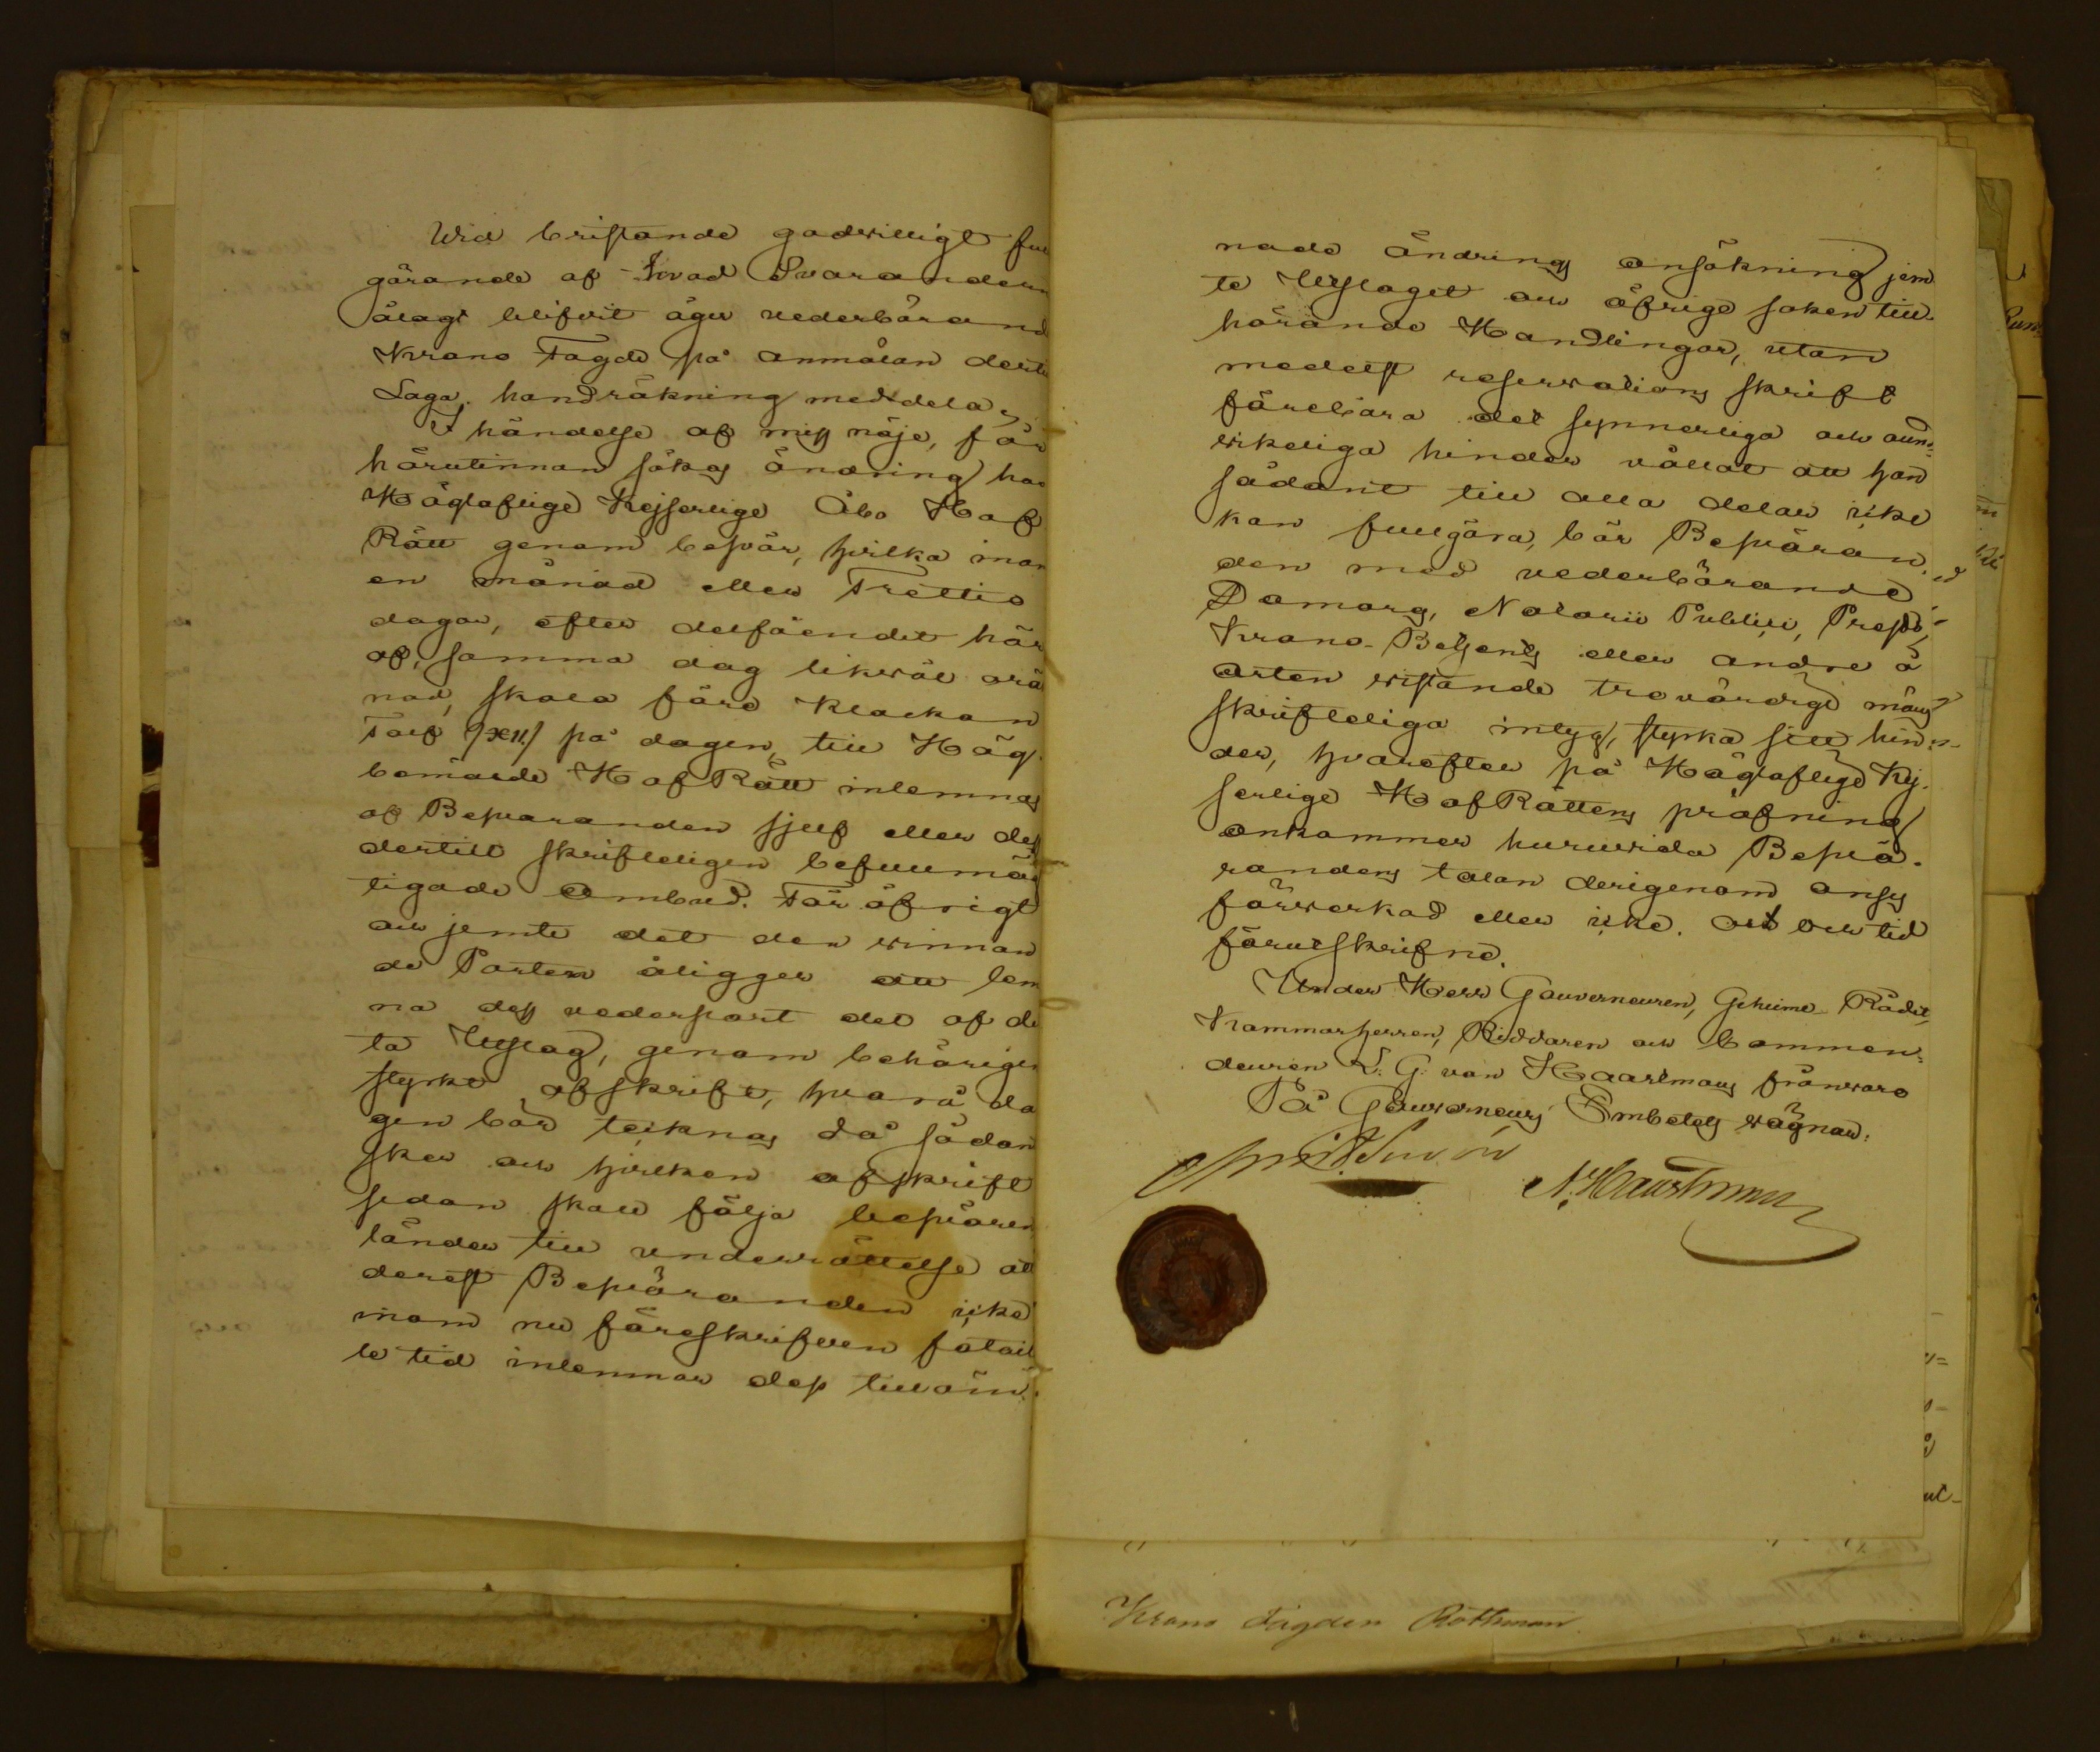 Wid bristande godwilligt full
görande af hvad Svaranden
ålagt blifvit äger vederbörand
Krono Fogde på anmälan derti
Laga handräkning meddela,
I händelse af missnöje, får
härutinnan sökas ändring hos
Högloflige Kejserlige Åbo Hof
Rätt genom besvär, hvilka inom
en månad eller Trettio
dagar, efter delfåendet här
af, samma dag likväl oräk
nad, skola före Klockan
Tolf /XII/ på dagen, till Hög-
bemälde Hof Rätt inlemnas
af Besvaranden sjelf eller dess
dertill skrifteligen befullmäg
tigade Ombud. För öfrigt
och jemte det den winnan
de Parten åligger att lem
na dess vederpart del af de
ta Utslag, genom behörigen
styrkt afskrift, hvarå da
gen bör teiknas då sådan
sker och hvilken afskrift
sedan skall följa besvären
länder till underrättelse att
derest Besväranden icke
inom nu föreskrifven fatal
le tid inlemnar dess tilläm-
nade ändrings ansökning jem
te Utslaget och öfrige saken till-
hörande Handlingar, utan
medelst reservations skrift
förebära det synnerliga och ound-
wikeliga hinder vållat att han
sådant till alla delar icke
kan fullgöra, bör Besväran-
den med vederbörande
Domares, Notarii Publici, Prests,
Krono-Betjents eller andre å
orten wistande trovärdige mäns
skrifteliga intyg, styrka sitt hin-
der, hvarefter på Högloflige Kej-
serlige Hof Rättens pröfning
ankommer huruvida Besvä-
randens talan derigenom anses
förwerkad eller icke. Ort och tid
förutskrifne.
Under Herr Gouverneuren, Geheime Rådet,
Kammarherren, Riddaren och Commen-
deuren L. G. von Haartmans frånvaro
På Gouverneurs Embetets wägnar:
Krono Fogden Rothman.